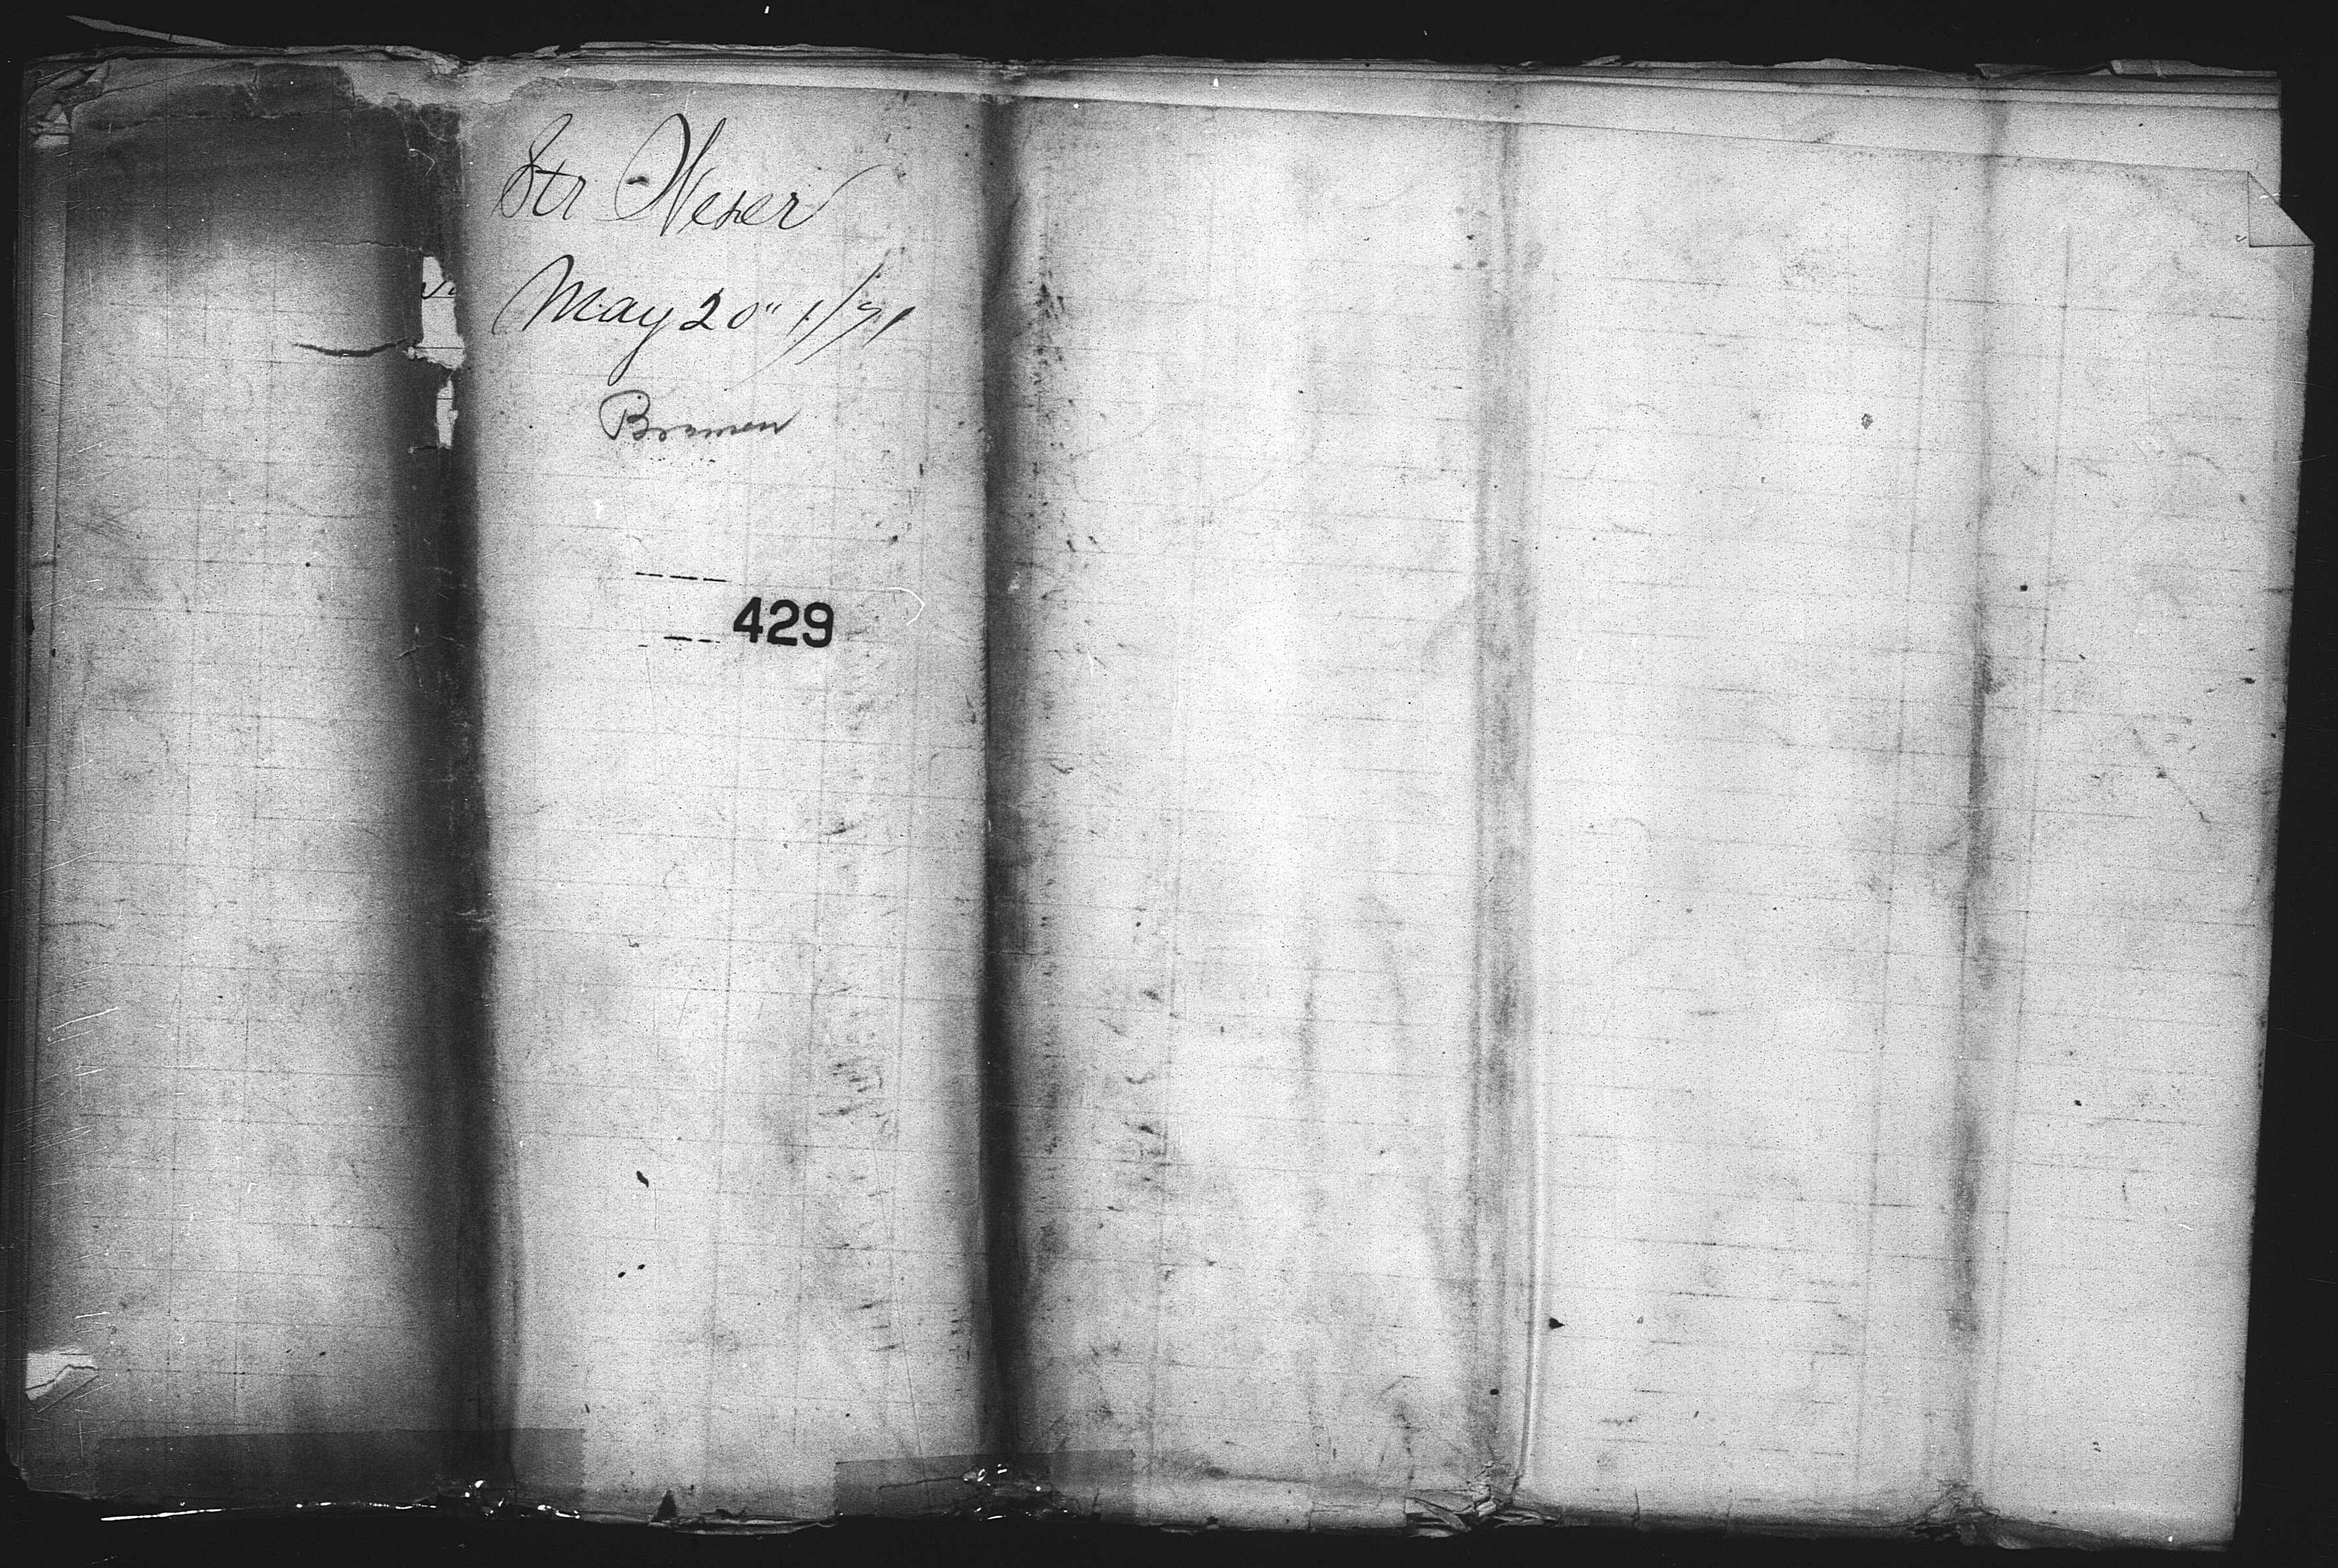 Str Weser
May 20" 1/71
Bremen
429